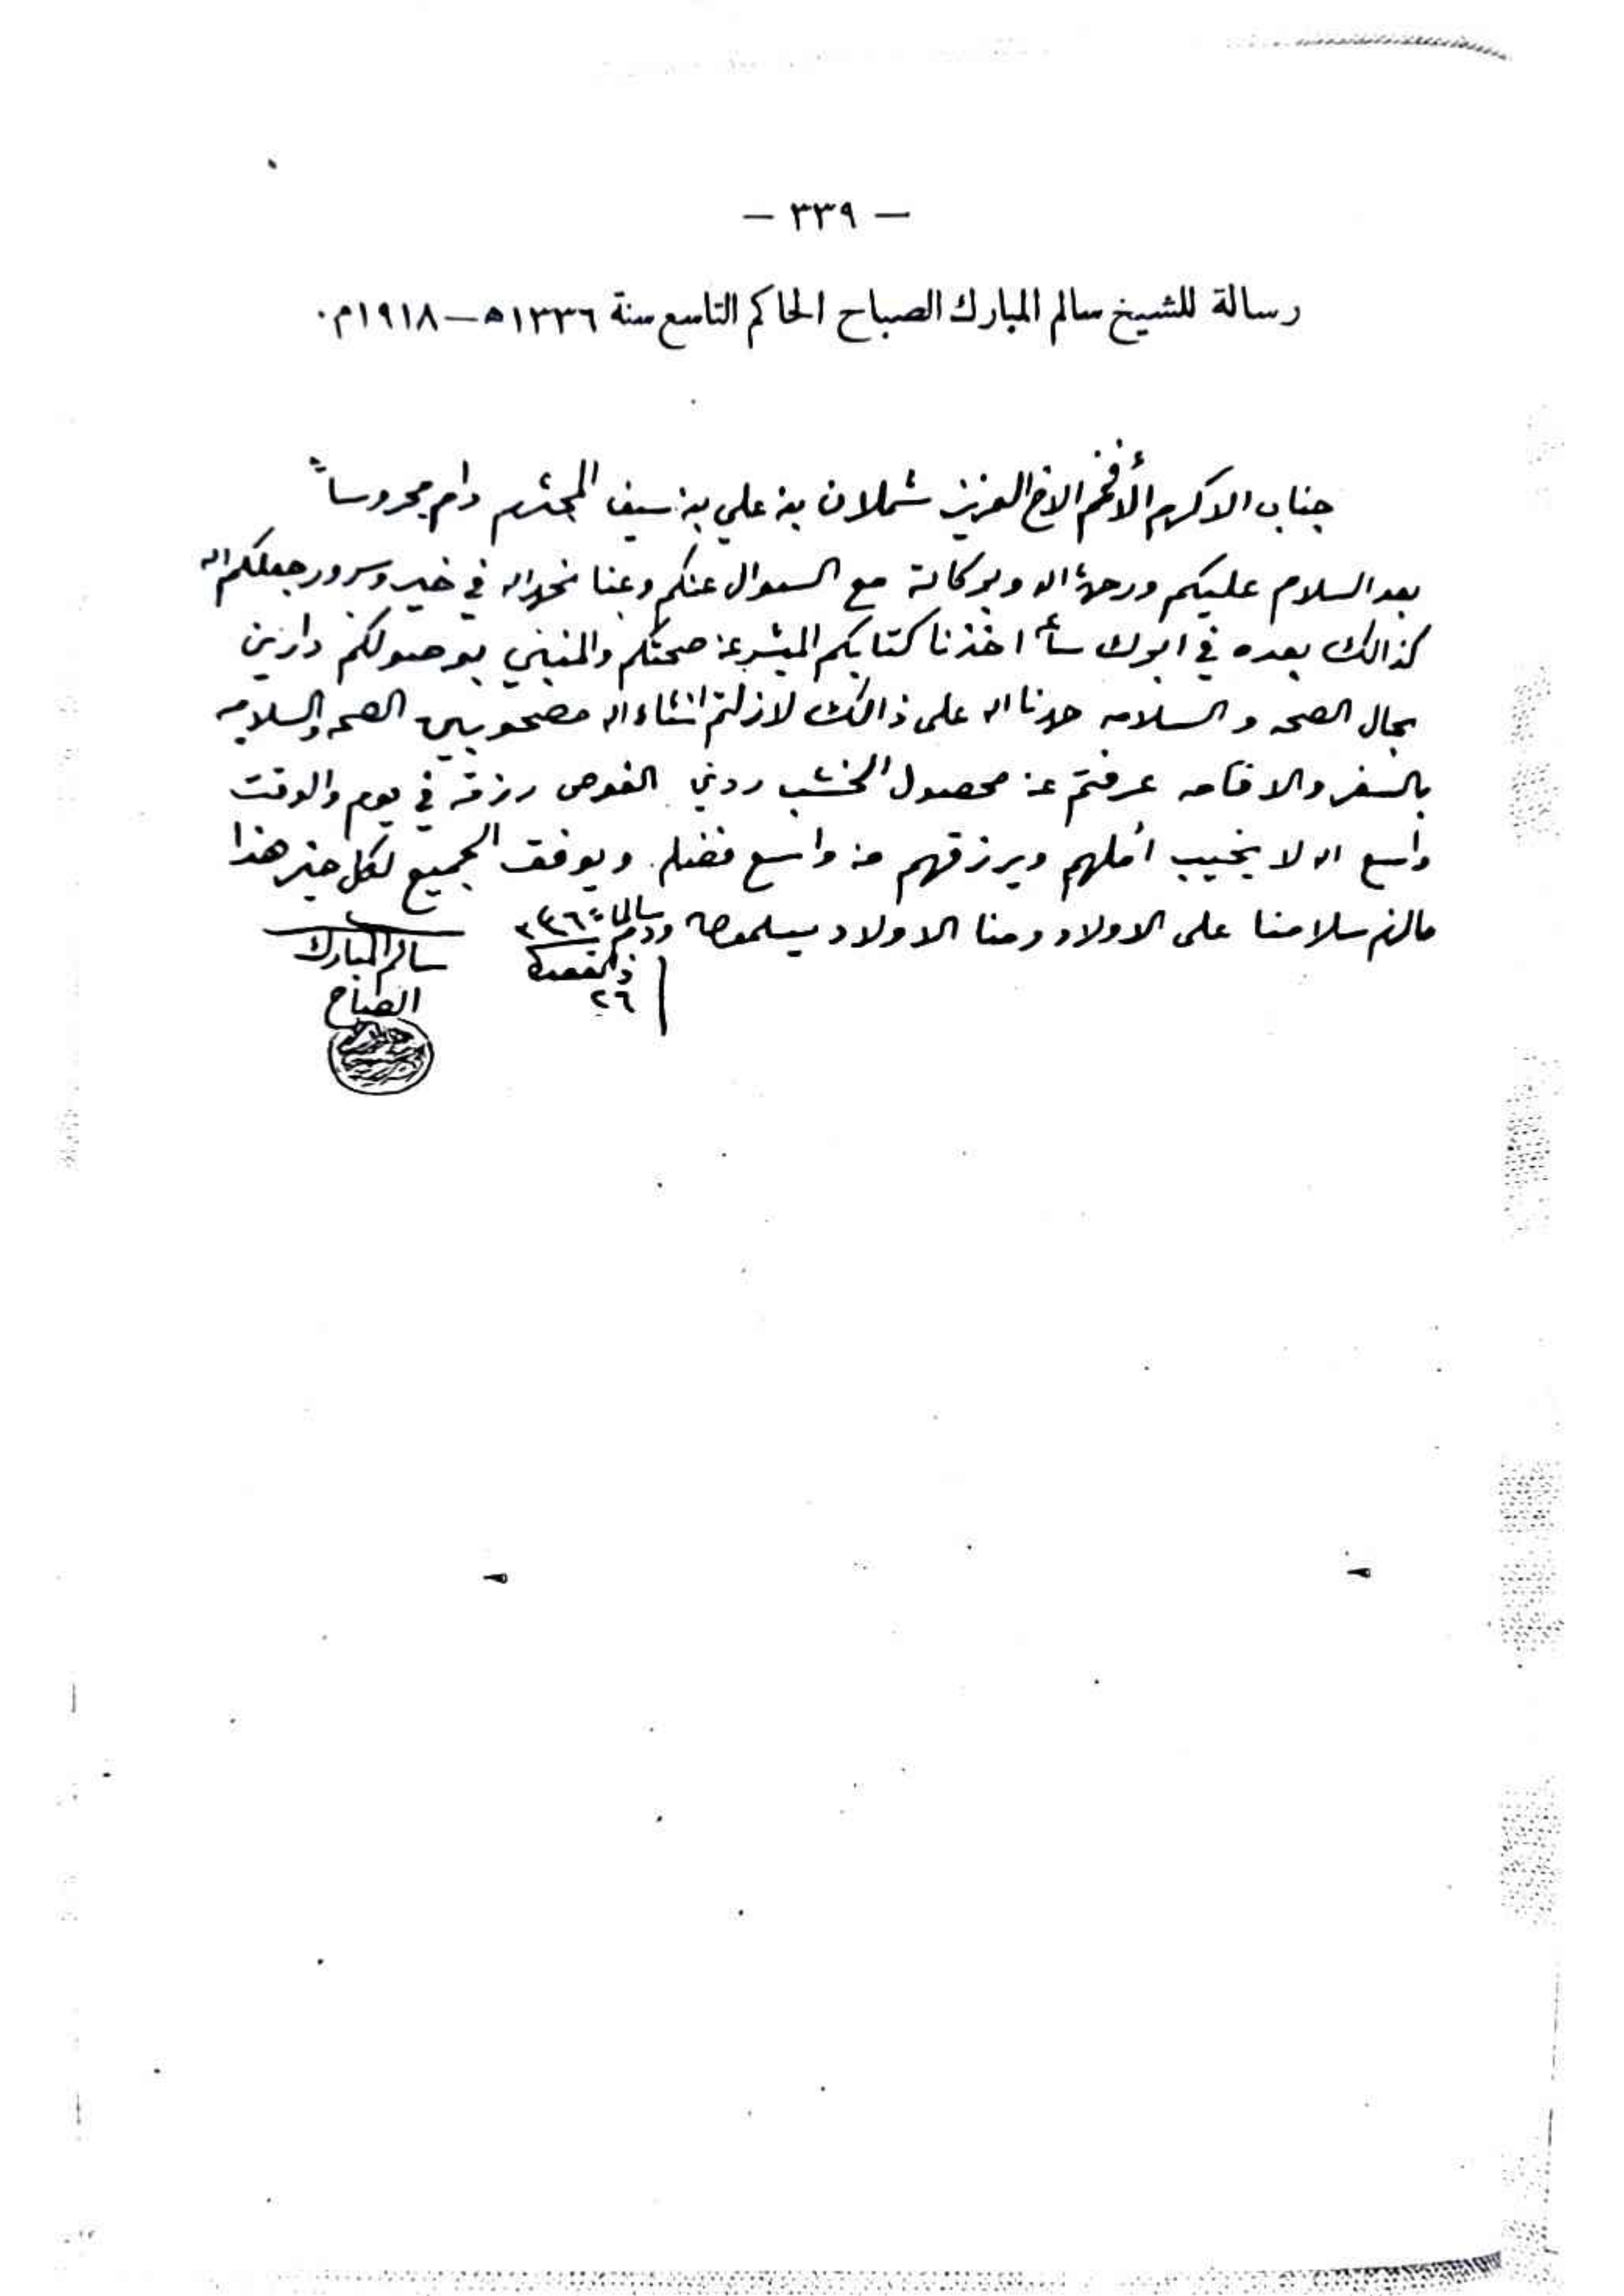 — ٣٣٩ —
رسالة للشيخ سالم المبارك الصباح الحاكم التاسع سنة ١٣٣٦ه‍ــ١٩١٨م٠
جناب الاكرم الأفخم الاخ العزيز شملان بن علي بن سيف المحترم دام محروساً
بعد السلام عليكم ورحمة الله وبركاته مع السوال عنكم وعنا نحمد الله في خير وسرور جعلكم الله
كذالك بعده في ابرك ساعة اخذنا كتابكم المبشر عن صحتكم والمنبي بوصولكم دارين
بحال الصحه والسلامه حمدنا الله على ذالك لازلتم انشاء الله مصحوبين الصحه والسلامه
بالسفر والاقامه عرفتم عن محصول الخشب ردي الغوص رزقه في يوم والوقت
واسع الله لا يخيب أملهم ويرزقهم من واسع فضله ويوفق الجميع لكل خير هذا
مالزم سلامنا على الاولاد ومنا الاولاد يسلمون ودم سالماً ٣٣٦
ذالقعدة
٢٦
سالم المبارك
الصباح